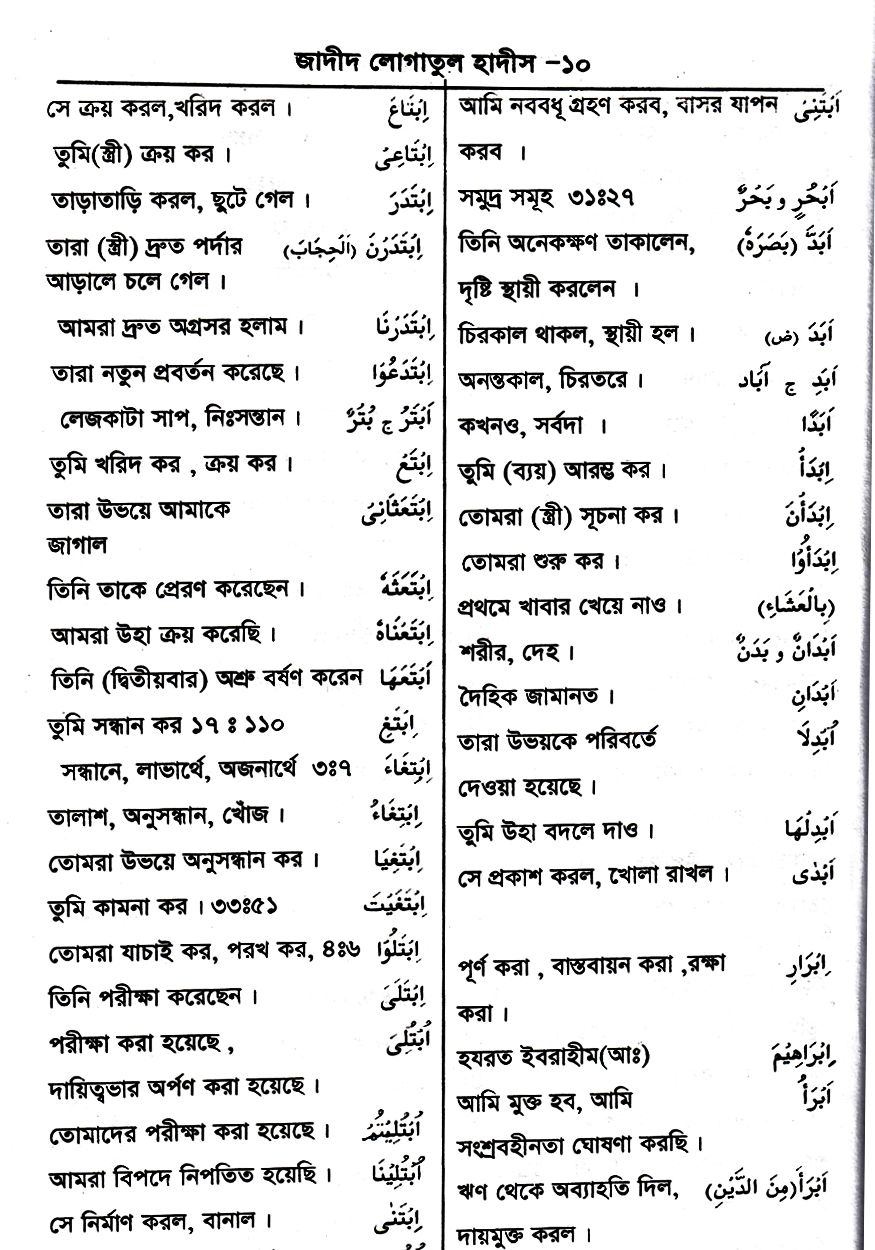 জাদীদ লোগাতুল হাদীস -১০
সে ক্রয় করল,খরিদ করল । اِبْتَاعَ
তুমি(স্ত্রী) ক্রয় কর । اِبْتَاعِىْ
তাড়াতাড়ি করল, ছুটে গেল । اِبْتَدَرَ
তারা (স্ত্রী) দ্রুত পর্দার اِبْتَدَرْنَ (اَلْحِجَابَ)
আড়ালে চলে গেল ।
আমরা দ্রুত অগ্রসর হলাম । اِبْتَدَرْنَا
তারা নতুন প্রবর্তন করেছে । اِبْتَدَعُوْا
লেজকাটা সাপ, নিঃসন্তান । اَبْتَرُ ج بُتْرٌ
তুমি খরিদ কর , ক্রয় কর । اِبْتَعْ
তারা উভয়ে আমাকে اِبْتَعَثَانِىْ
জাগাল
তিনি তাকে প্রেরণ করেছেন । اِبْتَعَثَهٗ
আমরা উহা ক্রয় করেছি । اِبْتَعْنَاهُ
তিনি (দ্বিতীয়বার) অশ্রু বর্ষণ করেন اَبْتَعَهَا
তুমি সন্ধান কর ১৭ ঃ ১১০ اِبْتَغِ
সন্ধানে, লাভার্থে, অজনার্থে ৩ঃ৭ اِبْتِغَاءَ
তালাশ, অনুসন্ধান, খোঁজ । اِبْتِغَاءُ
তোমরা উভয়ে অনুসন্ধান কর । اِبْتَغِيَا
তুমি কামনা কর । ৩৩ঃ৫১ اِبْتَغَيْتَ
তোমরা যাচাই কর, পরখ কর, ৪ঃ৬ اِبْتَلُوْا
তিনি পরীক্ষা করেছেন । اِبْتَلَىَ
পরীক্ষা করা হয়েছে , اُبْتُلِىَ
দায়িত্বভার অর্পণ করা হয়েছে ।
তোমাদের পরীক্ষা করা হয়েছে । اُبْتُلِيْتُمْ
আমরা বিপদে নিপতিত হয়েছি । اُبْتُلِيْنَا
সে নির্মাণ করল, বানাল । اِبْتَنٰى
আমি নববধূ গ্রহণ করব, বাসর যাপন اَبْتَنِىْ
করব ।
সমুদ্র সমূহ ৩১ঃ২৭ اَبْحُرٍ و بَحْرٌ
তিনি অনেকক্ষণ তাকালেন, اَبَدَّ (بَصَرَهٗ)
দৃষ্টি স্থায়ী করলেন ।
চিরকাল থাকল, স্থায়ী হল । اَبَدَ (ض)
অনন্তকাল, চিরতরে । اَبَدِ ج آبَاد
কখনও, সর্বদা । اَبَدًا
তুমি (ব্যয়) আরম্ভ কর । اِبْدَأْ
তোমরা (স্ত্রী) সূচনা কর । اِبْدَأْنَ
তোমরা শুরু কর । اِبْدَأُوْا
প্রথমে খাবার খেয়ে নাও । (بِالْعَشَاءِ)
শরীর, দেহ । اَبْدَانٌ و بَدَنٌ
দৈহিক জামানত । اَبْدَانِ
তারা উভয়কে পরিবর্তে اُبْدِلَا
দেওয়া হয়েছে ।
তুমি উহা বদলে দাও । اَبْدِلْهَا
সে প্রকাশ করল, খোলা রাখল । اَبْدٰى
পূর্ণ করা , বাস্তবায়ন করা ,রক্ষা اِبْرَارِ
করা ।
হযরত ইবরাহীম(আঃ) اِبْرَاهِيْمَ
আমি মুক্ত হব, আমি اَبْرَأُ
সংশ্রবহীনতা ঘোষণা করছি ।
ঋণ থেকে অব্যাহতি দিল, اَبْرَأَ(مِنَ الدَّيْنِ)
দায়মুক্ত করল ।